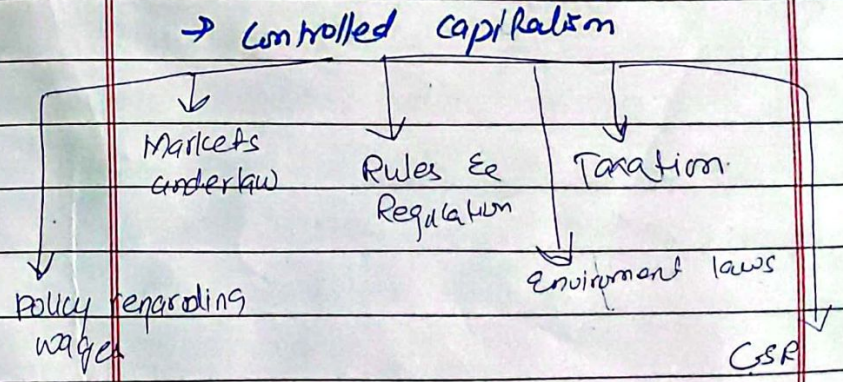 → Controlled capitalism
Markets
underlaw
Rules &
Regulation
Taxation.
Enviroment laws
policy regarding
wages
CSR